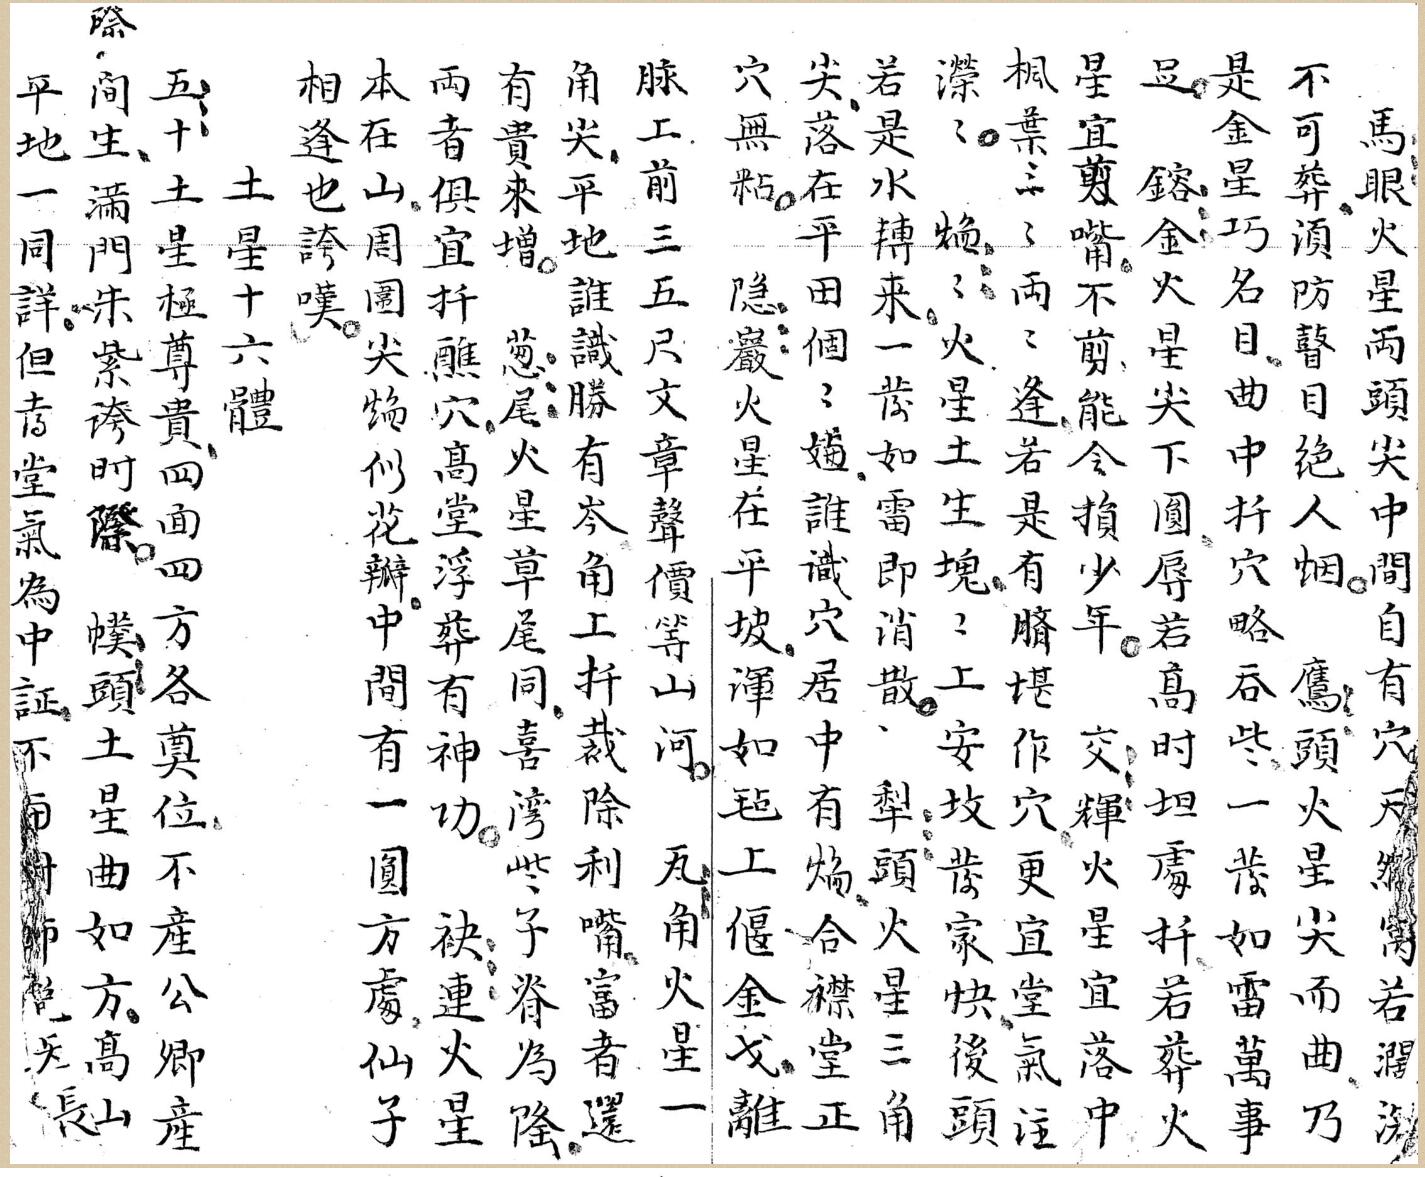 馬眼火星両頭尖中間自有穴天然窩若濶
不可葬須防瞽目绝人烟 鷹頭火星尖而曲乃
是金星巧名目曲中扦穴略吞些一發如雷萬事
足 鎔金火星尖下圓辱若髙时坦䖏扦若葬火
星宜剪嘴不剪能令損少年 交輝火星宜落中
楓葉三〻両〻逢若是有臍堪作穴更宜堂氣注
濴〻 焔〻火星土生塊〻上安坟發家快後頭
若是水轉来一發如雷即消散 犁頭火星三角
尖落在平田個〻誰识穴居中有焔合襟堂正
穴無粘 隐巖火星在平坡渾如毡上偃金戈離
脉上前三五尺文章聲價等山河 瓦角火星一
角尖平地誰識勝有岑角上扦裁除利嘴富者還
有貴來增 葱尾火星草尾同喜湾些子脊為隆
両者俱宜扦醮穴髙堂浮葬有神功 袂連火星
本在山周圍尖焔似花瓣中間有一圓方䖏仙子
相逢也誇嘆
土星十六體
五十土星極尊貴四面四方各奠位不産公卿産
間生滿門朱紫誇时際 幞頭土星曲如方髙山
際
平地一同詳但寻堂氣為中証不
長